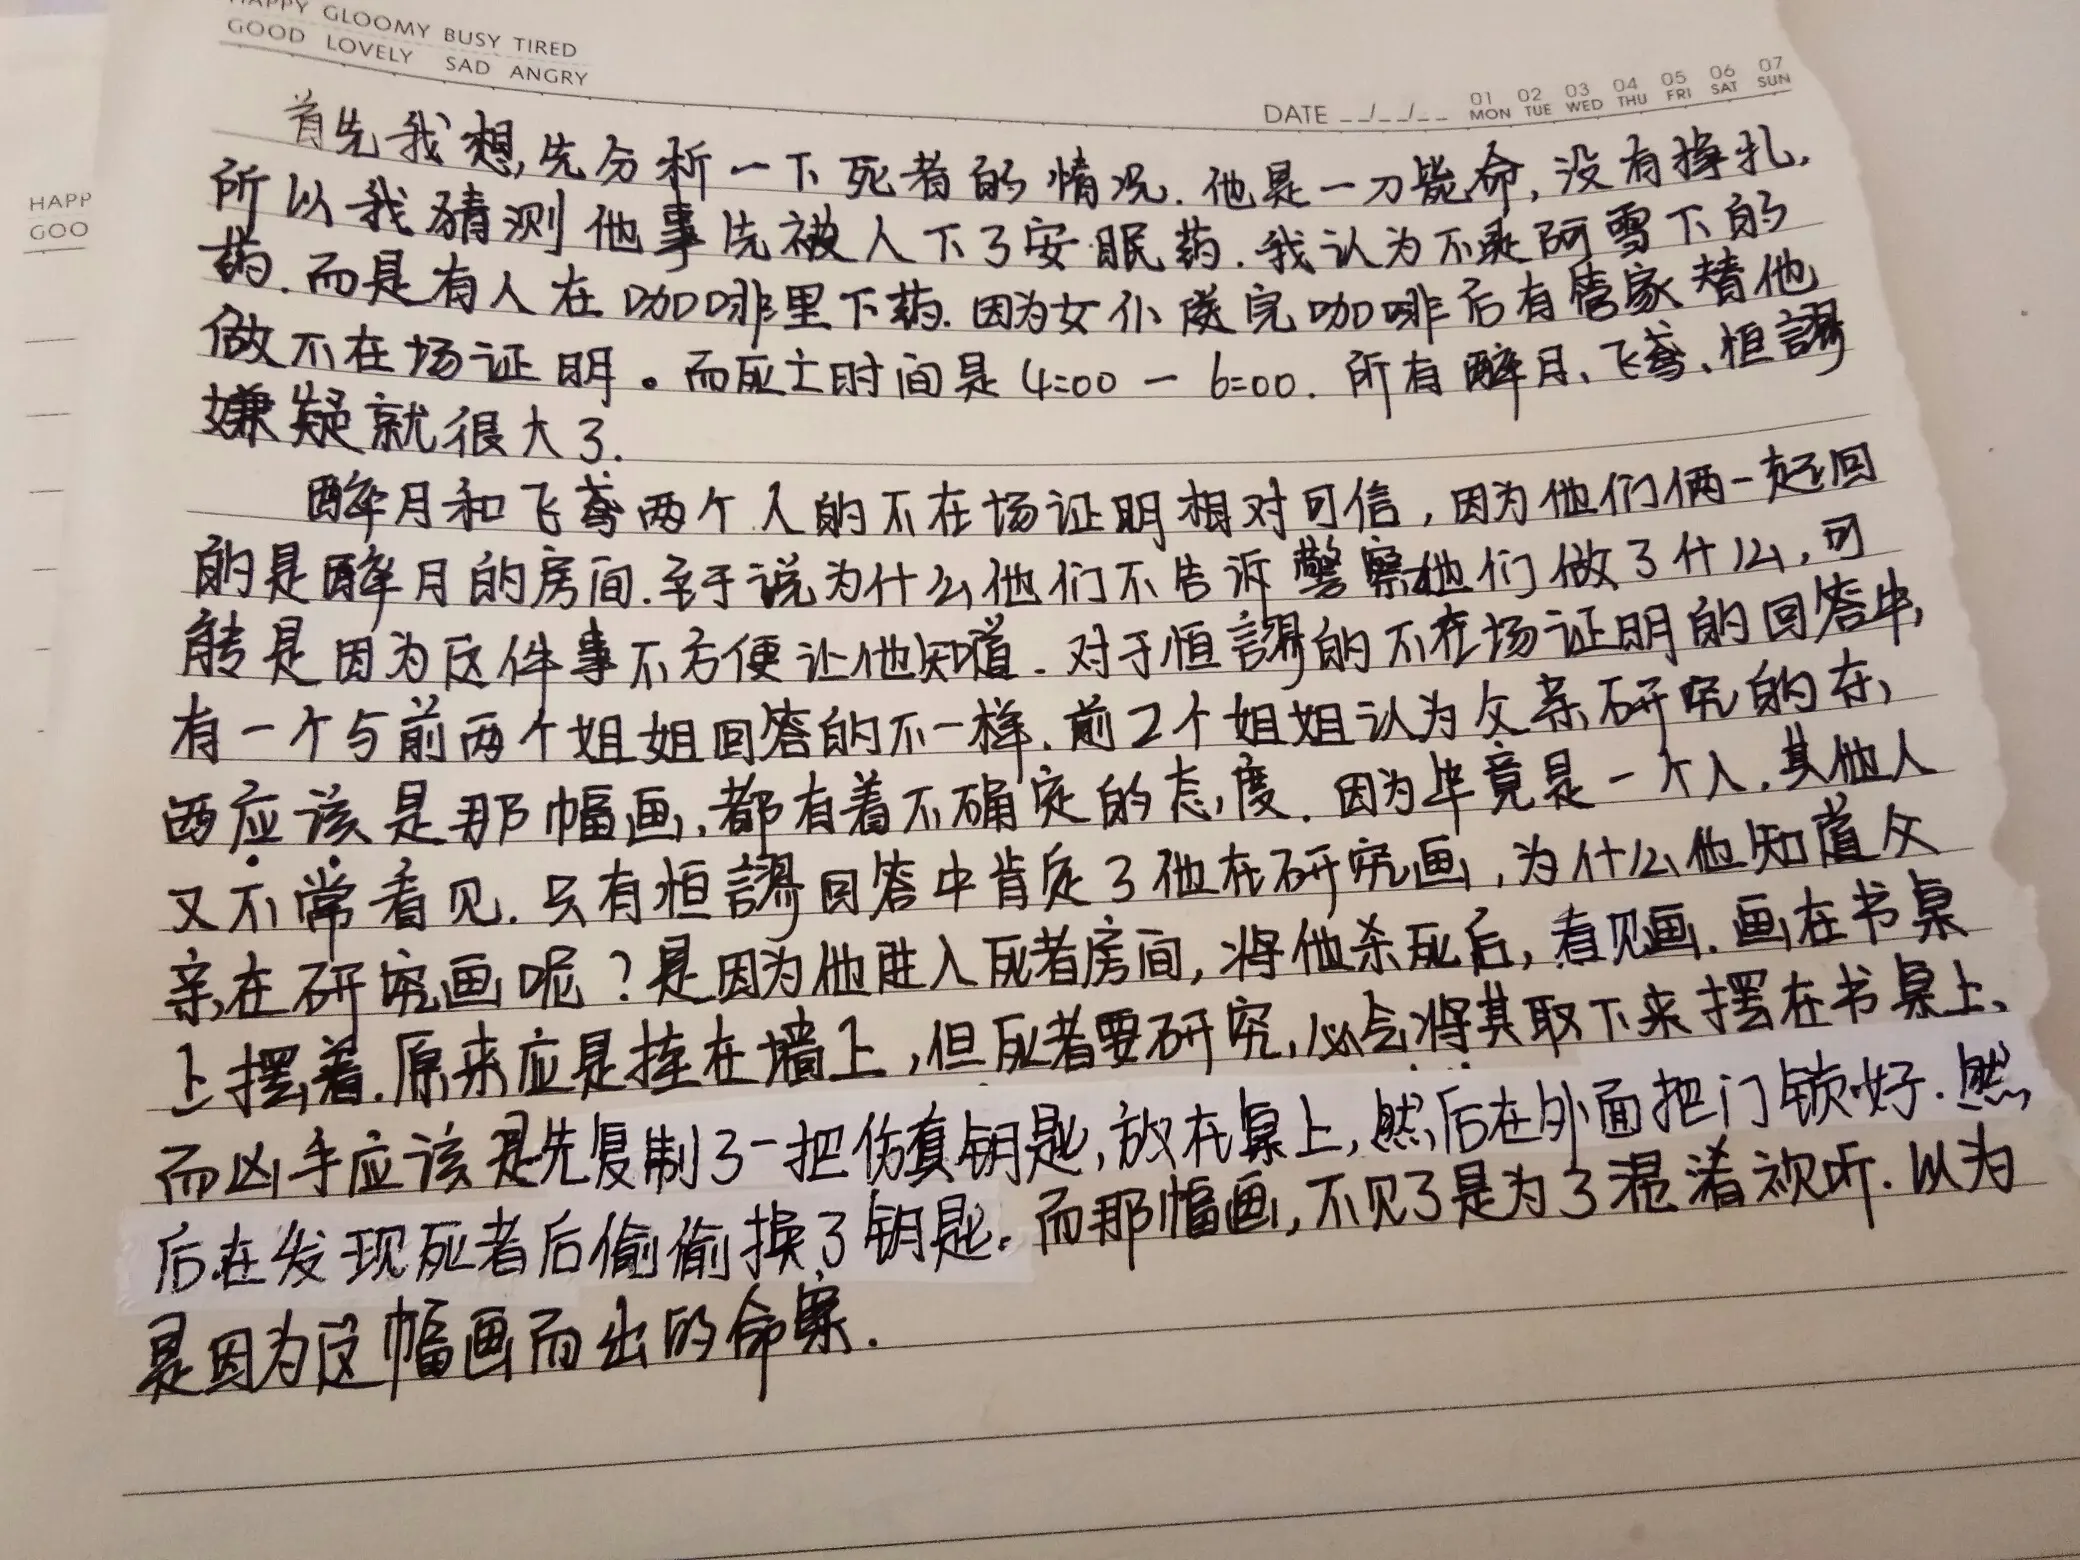 HAPPY GLOOMY BUSY TIRED
GOOD LOVELY SAD ANGRY
DATE __/__/__ 01 MON 02 TUE 03 WED 04 THU 05 FRI 06 SAT 07 SUN
HAPP
GOO
首先我想,先分析一下死者的情况.他是一刀毙命,没有挣扎.
所以我猜测他事先被人下了安眠药.我认为不是阿雪下的
药.而是有人在咖啡里下药.因为女仆送完咖啡后有管家替他
做不在场证明。而死亡时间是4:00-6:00.所有醉月、飞鸢、恒謬
嫌疑就很大了.
醉月和飞鸢两个人的不在场证明相对可信,因为他们俩一起回
的是醉月的房间.至于说为什么他们不告诉警察他们做了什么,可
能是因为这件事不方便让他知道.对于恒謬的不在场证明的回答中,
有一个与前两个姐姐回答的不一样.前2个姐姐认为父亲研究的东
西应该是那幅画,都有着不确定的态度.因为毕竟是一个人.其他人
又不常看见.只有恒謬回答中肯定了他在研究画,为什么他知道父
亲在研究画呢?是因为他进入死者房间,将他杀死后,看见画.画在书桌
上摆着.原来应是挂在墙上,但死者要研究,必会将其取下来摆在书桌上、
而凶手应该是先复制了一把仿真钥匙,放在桌上,然后在外面把门锁好.然
后在发现死者后偷偷换了钥匙.而那幅画,不见了是为了混淆视听.以为
是因为这幅画而出的命案.